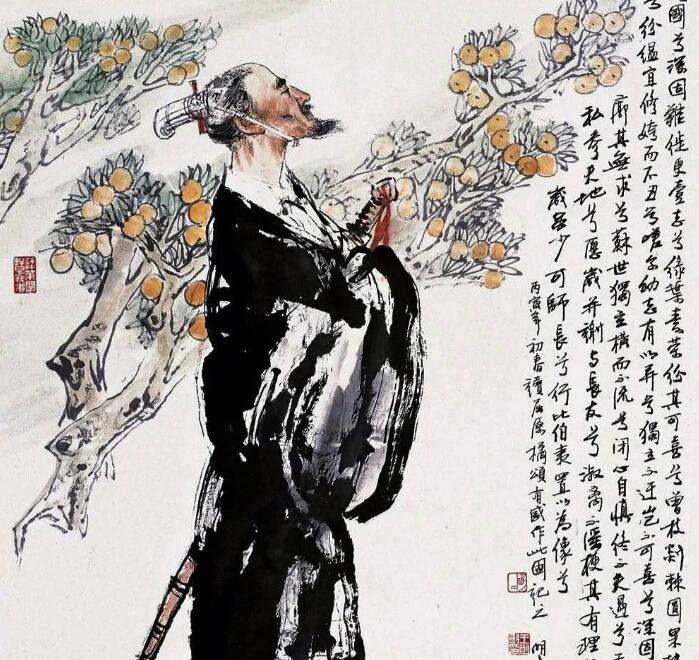 國兮深固難徙更壹志兮綠葉素榮紛其可喜兮曾枝剡棘圓果
兮紛緼宜修姱而不丑兮嗟尔幼志有以异兮獨立不迁豈不可喜兮深固
廓其無求兮蘇世獨立橫而不流兮閉心自慎終不失過兮
私參天地兮愿歲并謝与長友兮淑離不淫梗其有理
歲雖少可師長兮行比伯夷置以為像兮
丙寅年初春讀屈原橘頌有感作此圖記之 明